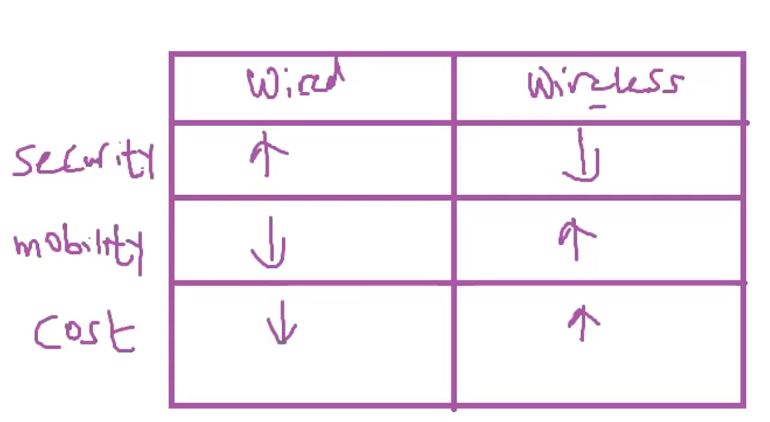 Wired Wireless
security ↑ ↓
mobility ↓ ↑
Cost ↓ ↑